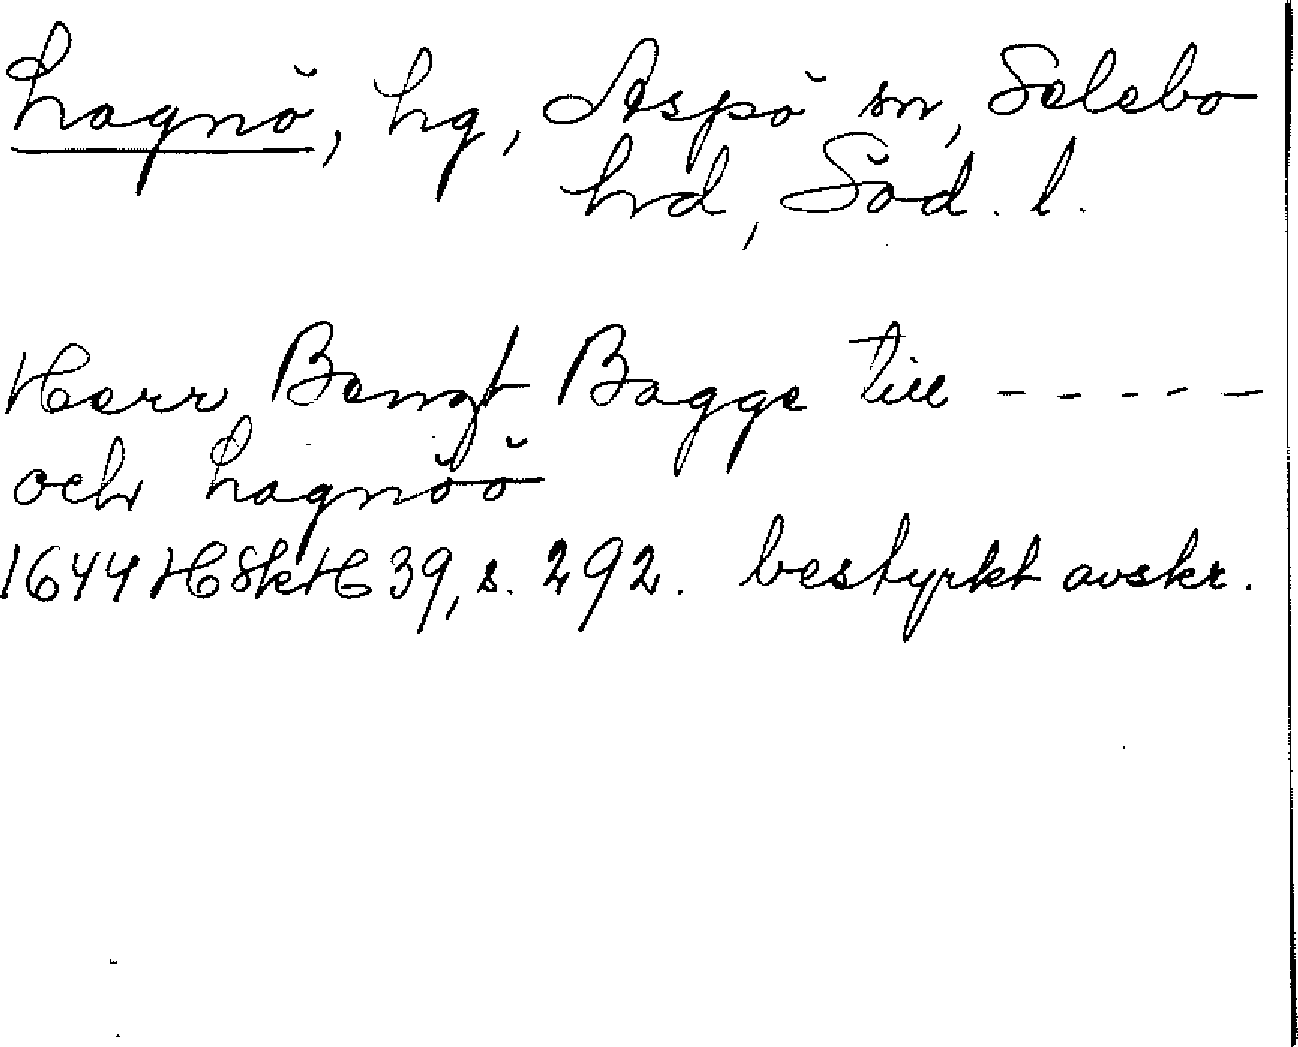 Lagnö, hg, Aspö sn, Selebo
hrd, Söd. l.
Herr Bengt Bagge till - - - - -
och Lagnöö
1644 HSkH 39, s. 292. bestyrkt avskr.